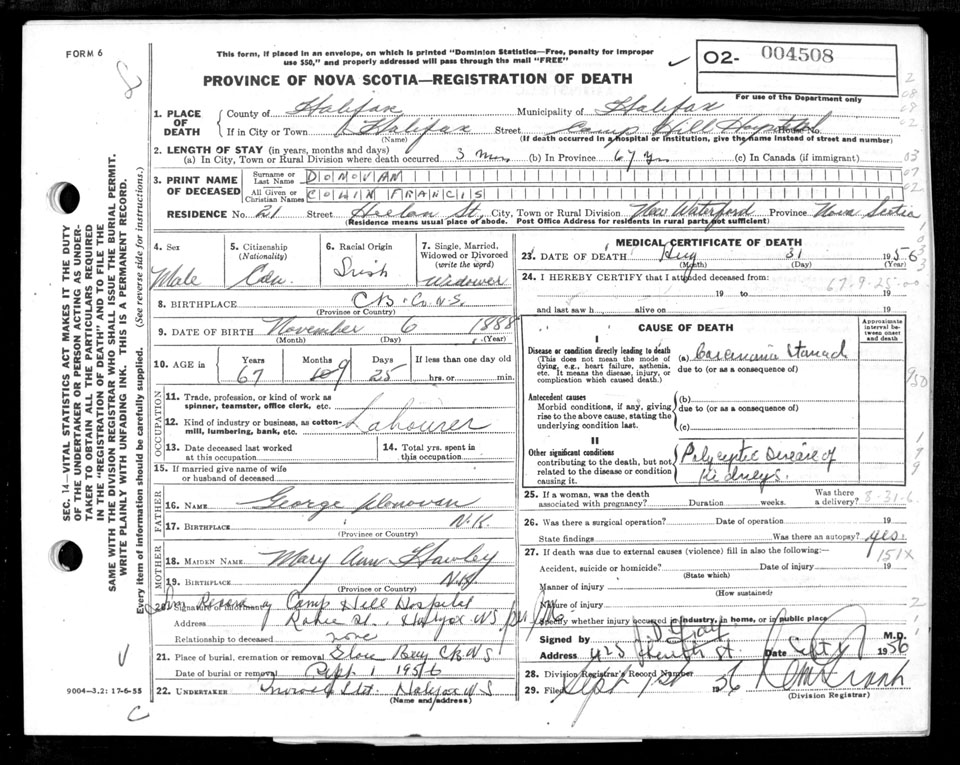 FORM 6
This form, if placed in an envelope, on which is printed "Dominion Statistics—Free, penalty for improper
use $50," and properly addressed will pass through the mail "FREE"
PROVINCE OF NOVA SCOTIA—REGISTRATION OF DEATH
O2- 004508
For use of the Department only
1. PLACE OF DEATH County of Halifax Municipality of Halifax
If in City or Town Halifax Street Camp Hill Hospital House No.
(Name) (If death occurred in a hospital or institution, give the name instead of street and number)
2. LENGTH OF STAY (in years, months and days)
(a) In City, Town or Rural Division where death occurred 3 mos (b) In Province 67 yrs (c) In Canada (if immigrant)
3. PRINT NAME OF DECEASED Surname or Last Name DONOVAN
All Given or Christian Names FRANCIS
RESIDENCE No. 21 Street St. City, Town or Rural Division New Waterford Province Nova Scotia
(Residence means usual place of abode. Post Office Address for residents in rural parts not sufficient)
4. Sex Male
5. Citizenship (Nationality) Can.
6. Racial Origin Irish
7. Single, Married, Widowed or Divorced (write the word) Widower
8. BIRTHPLACE C.B. Co. N.S.
(Province or Country)
9. DATE OF BIRTH November 6 1888
(Month) (Day) (Year)
10. AGE in Years 67 Months 9 Days 25 If less than one day old hrs. or min.
OCCUPATION
11. Trade, profession, or kind of work as spinner, teamster, office clerk, etc.
12. Kind of industry or business, as cotton-mill, lumbering, bank, etc. Labourer
13. Date deceased last worked at this occupation
14. Total yrs. spent in this occupation
15. If married give name of wife or husband of deceased
FATHER
16. NAME George Donovan
17. BIRTHPLACE N.K.
(Province or Country)
MOTHER
18. MAIDEN NAME Mary Ann Hawley
19. BIRTHPLACE N.K.
(Province or Country)
20. Signature of informant Records of Camp Hill Hospital
Address Robie St. Halifax N.S.
Relationship to deceased none
21. Place of burial, cremation or removal Glace Bay CB NS
Date of burial or removal Sept. 1 1956
22. UNDERTAKER Halifax N.S
(Name and address)
9004—3.2: 17-6-55
MEDICAL CERTIFICATE OF DEATH
23. DATE OF DEATH Aug 31 1956
(Month) (Day) (Year)
24. I HEREBY CERTIFY that I attended deceased from:
19 to 19
and last saw h alive on 19
67-9-25-00
CAUSE OF DEATH
Approximate interval between onset and death
I
Disease or condition directly leading to death
(This does not mean the mode of dying, e.g., heart failure, asthenia, etc. It means the disease, injury, or complication which caused death.)
(a) Carcinoma Stomach
due to (or as a consequence of)
Antecedent causes
Morbid conditions, if any, giving rise to the above cause, stating the underlying condition last.
(b)
due to (or as a consequence of)
(c)
II
Other significant conditions
contributing to the death, but not related to the disease or condition causing it.
Polycystic Disease of
Kidneys
25. If a woman, was the death associated with pregnancy? Duration weeks. Was there a delivery?
8-31-6
26. Was there a surgical operation? Date of operation 19
State findings Was there an autopsy? yes
151X
27. If death was due to external causes (violence) fill in also the following:—
Accident, suicide or homicide? Date of injury 19
(State which)
Manner of injury
(How sustained)
Nature of injury
Specify whether injury occurred in industry, in home, or in public place
Signed by M.D.
Address 425 St. Date Sept 1956
28. Division Registrar's Record Number
29. Filed Sept 1st 1956
(Division Registrar)
SEC. 14—VITAL STATISTICS ACT MAKES IT THE DUTY
OF THE UNDERTAKER OR PERSON ACTING AS UNDER-
TAKER TO OBTAIN ALL THE PARTICULARS REQUIRED
IN THE "REGISTRATION OF DEATH" AND TO FILE THE
SAME WITH THE DIVISION REGISTRAR WHO SHALL ISSUE THE BURIAL PERMIT.
WRITE PLAINLY WITH UNFADING INK. THIS IS A PERMANENT RECORD.
Every item of information should be carefully supplied. (See reverse side for instructions.)